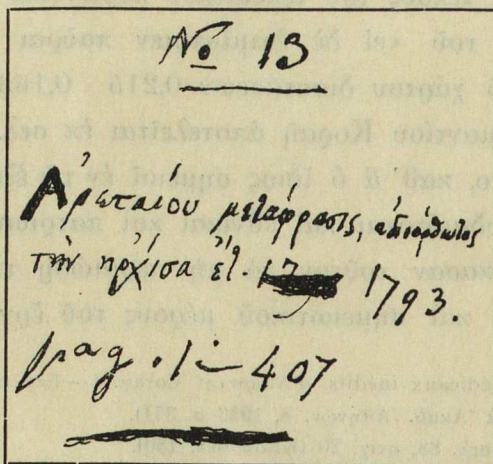 No 13
Ἀρεταίου μετάφρασις, ἀδιόρθωτος
τὴν ἤρχισα εἰς 1793
pag. 1 — 407